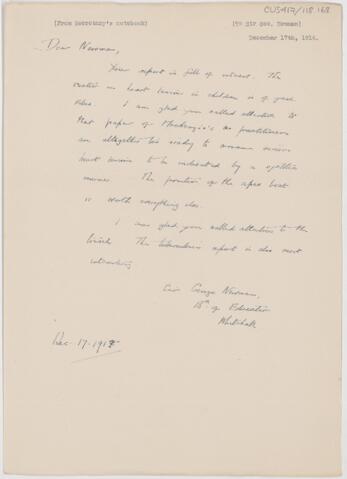 CUS417/118.168
[From Secretary's notebook] [To Sir Geo. Newman]
December 17th, 1914.
Dear Newman,
Your report is full of interest. The
section on heart lesions in children is of great
value. I am glad you called attention to
that paper of Mackenzie's as practitioners
are altogether too ready to
heart lesion to be indicated by a systolic
murmur. The position of the apex beat
is worth everything else.
I am glad you called attention to the
The tuberculosis report is also most
interesting
Sir George Newman,
Bd of Education
Whitehall
Dec. 17. 191